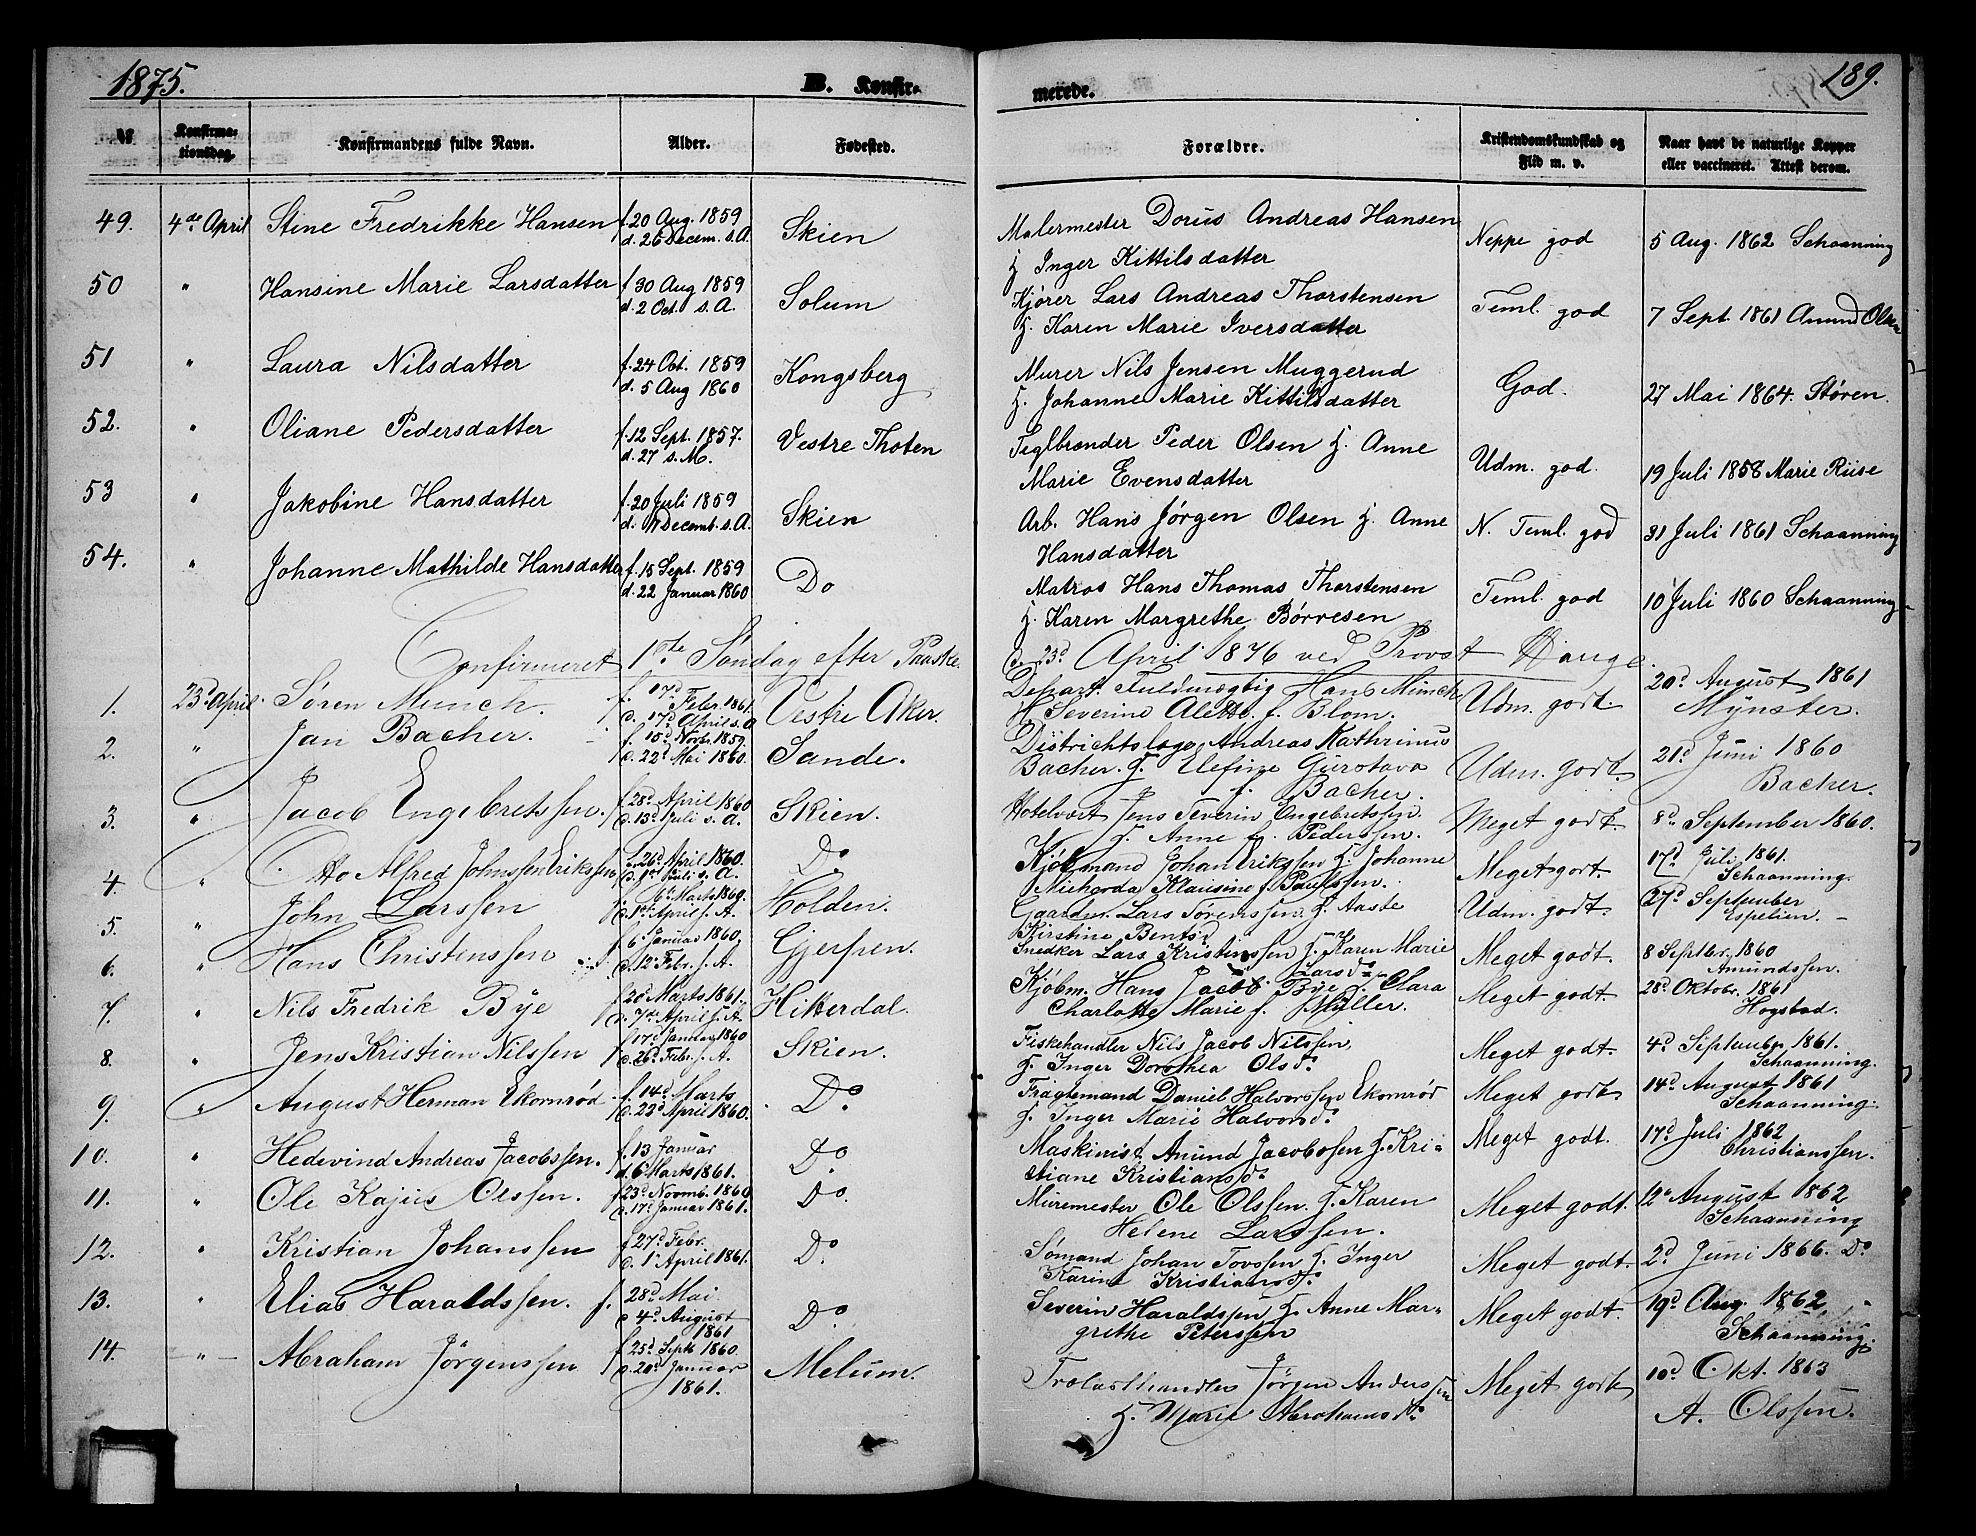 1875. B. Konfir- merede. 189.
№ Konfirma-tionsdag. Konfirmandens fulde Navn. Alder. Fødested. Forældre. Kristendomskundskab og Flid m. v. Naar havt de naturlige Kopper eller vaccineret. Attest derom.
49. 4de April Stine Fredrikke Hansen f. 20 Aug. 1859 Skien Malermester Dorus Andreas Hansen Neppe god 5 Aug. 1862 Schaanning
d. 26 Decem. s. A. H. Inger Kittilsdatter
50 " Hansine Marie Larsdatter f 30 Aug 1859 Solum Kjører Lars Andreas Thorstensen Teml. god 7 Sept. 1861 Amund Olsen
d. 2 Oct. s. A. H. Karen Marie Iversdatter
51 " Laura Nilsdatter f. 24 Oct. 1859 Kongsberg Murer Nils Jensen Muggerud God. 27 Mai 1864. Støren.
d. 5 Aug 1860 H. Johanne Marie Kittilsdatter
52. " Oliane Pedersdatter f. 12 Sept. 1857. Vestre Thoten Teglbrænder Peder Olsen H. Anne Udm. god. 19 Juli 1858 Marie Riise
d. 27 s. M. Marie Evensdatter
53 " Jakobine Hansdatter f. 20 Juli 1859 Skien Arb. Hans Jørgen Olsen H. Anne N. Teml. god 31 Juli 1861 Schaanning
d. Decemb. s. A. Hansdatter
54. " Johanne Mathilde Hansdatter f. 15 Sept. 1859 Do Matros Hans Thomas Thorstensen Teml. god 10 Juli 1860 Schaanning
d. 22 Januar 1860 H. Karen Margrethe Børresen
Confirmeret 1ste Søndag efter Paaske d. 23d April 1876 ved Provst Hauge.
1. 23d April Søren Munch. f. 17d Febr. 1861. Vestre Aker. Depart. Fuldmægtig Hans Münch Udm. godt. 20d August 1861
d. 17d April s. A. H. Severine Alette f. Blom. Mynster.
2. " Jan Bacher. f. 15d Novbr. 1859. Sande. Districtslæge Andreas Kathrinus Udm. godt. 21d Juni 1860
d. 22d Mai 1860. Bacher. H. Elefine Gustava Bacher.
f. Bacher.
3. " Jacob Engebretssen. f. 28d April 1860 Skien. Hotelvært Jens Severin Engebretssen. Meget godt. 8d September 1860.
d. 13d Juli s. A. H. Anne f. Pederssen.
4 " Otto Alfred Johnssen Erikssen f. 26d April 1860. Do Kjøbmand Johan Erikssen H. Johanne Meget godt. 17d Juli 1861.
d. 1st Juli s. A. Michorda Klausine f. Paulssen. Schaanning.
5. " John Larssen f. 6te Marts 1860. Holden. Gaardm. Lars Sørenssen. H. Aaste Udm. godt. 27d September
d. 1ste April s. A. Kirstine Bentsd. Espelien.
6. " Hans Christenssen f. 6 Januar 1860. Gjerpen. Snedker Lars Kristenssen H. Karen Marie Meget godt. 8 Septbr. 1860
d. 12 Febr. s. A. Larsd. Amundssen.
7. " Nils Fredrik Bye f. 20d Marts 1861. Hitterdal. Kjøbm. Hans Jacob Bye H. Clara Meget godt. 28d Oktobr. 1861
d. 7de April s. A. Charlotte Marie f. Müller. Hogstad.
8. " Jens Kristian Nilssen f. 17d Januar 1860 Skien. Fiskehandler Nils Jacob Nilssen Meget godt. 4d Septembr 1861.
d. 26d Febr. s. A. H. Inger Dorothea Olsd. Schaanning.
9. " August Herman Ekornrød f. 14d Marts Do Fragtemand Daniel Halvorssen Ekornrød Meget godt. 14d August 1861
d. 22d April 1860. H. Inger Marie Halvorsd. Schaanning.
10. " Hedevind Andreas Jacobssen. f. 13 Januar Do Maskinist Amund Jacobssen H. Kri- Meget godt. 17d Juli 1862
d. 6 Marts 1861. stiane Kristiansd. Christianssen.
11. " Ole Kajus Olssen. f. 23d Novmb. 1860 Do. Muremester Ole Olssen. H. Karen Meget godt. 12te August 1862
d. 17d Januar 1861. Helene Larssen. Schaanning
12. " Kristian Johanssen f. 27d Febr. Do. Sømand Johan Tovssen H. Inger Meget godt. 2d Juni 1866. Do
d. 1ste April 1861. Karine Kristiansd.
13. " Elias Haraldssen. f. 28d Mai. Do Severin Haraldssen H. Anne Mar- Meget godt. 19d Aug. 1862
d. 4d August grethe Peterssen Schaanning.
1861
14. " Abraham Jörgenssen f. 25d Septb 1860. Melum. Trælasthandler Jörgen Anderssen Meget godt 10d Okt. 1863
d. 20d Januar H. Marie Abrahamsd. A. Olssen.
1861.